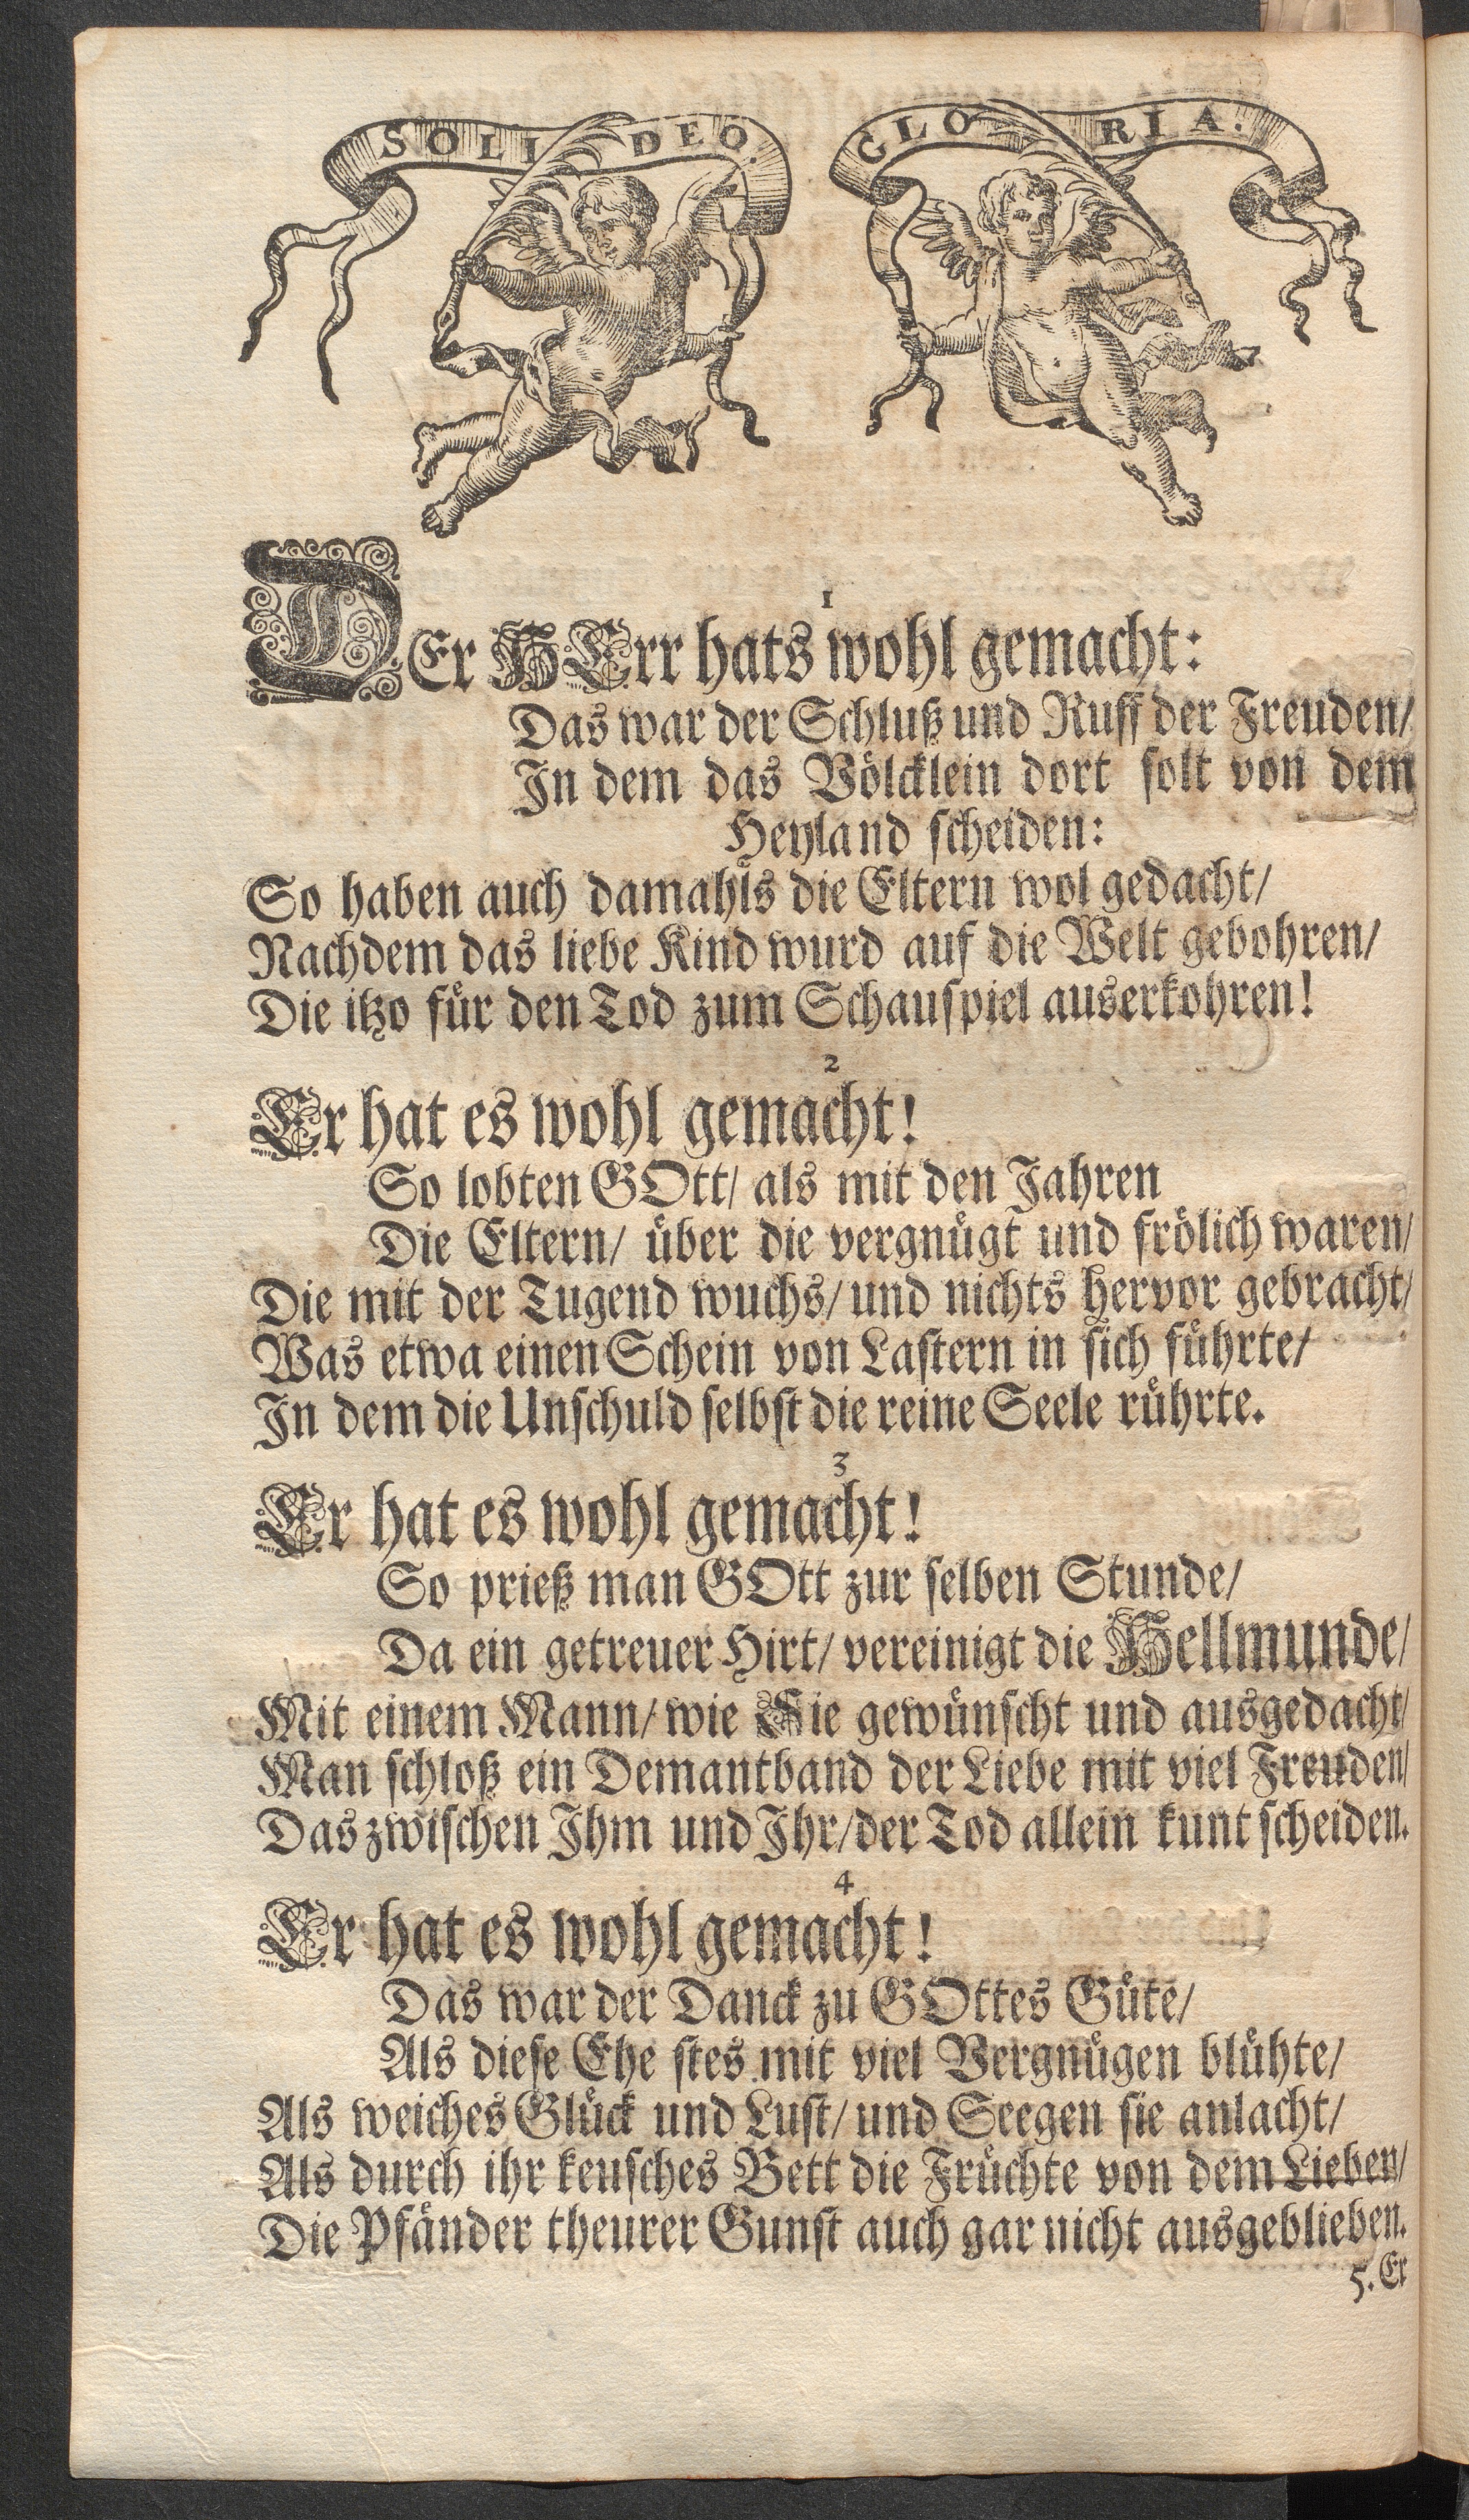 SOLI DEO.
GLORIA.
1
DEr HErr hats wohl gemacht:
Das war der Schluß und Ruff der Freuden/
In dem das Völcklein dort solt von dem
Heyland scheiden:
So haben auch damahls die Eltern wol gedacht/
Nachdem das liebe Kind wurd auf die Welt gebohren/
Die itzo für den Tod zum Schauspiel auserkohren!
2
Er hat es wohl gemacht!
So lobten GOtt/ als mit den Jahren
Die Eltern/ über die vergnügt und frölich waren/
Die mit der Tugend wuchs/ und nichts hervor gebracht/
Was etwa einen Schein von Lastern in sich führte/
In dem die Unschuld selbst die reine Seele rührte.
3
Er hat es wohl gemacht!
So prieß man GOtt zur selben Stunde/
Da ein getreuer Hirt/ vereinigt die Hellmunde/
Mit einem Mann/ wie Sie gewünscht und ausgedacht/
Man schloß ein Demantband der Liebe mit viel Freuden/
Das zwischen Ihm und Ihr/ der Tod allein kunt scheiden.
4
Er hat es wohl gemacht!
Das war der Danck zu GOttes Güte/
Als diese Ehe stes mit viel Vergnügen blühte/
Als weiches Glück und Lust/ und Seegen sie anlacht/
Als durch ihr keusches Bett die Früchte von dem Lieben/
Die Pfänder theurer Gunst auch gar nicht ausgeblieben.
5. Er